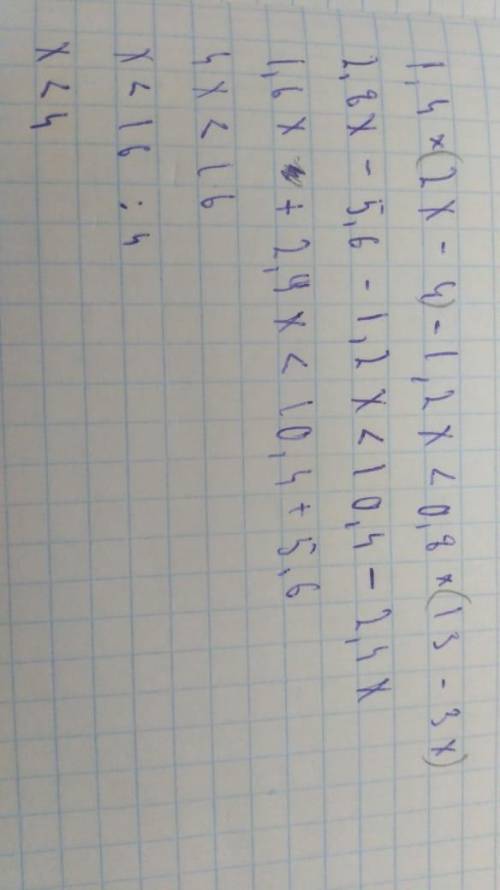 1,4×(2x-4)-1,2x<0,8×(13-3x)
2,8x-5,6-1,2x<10,4-2,4x
1,6x+2,4x<10,4+5,6
4x<16
x<16:4
x<4